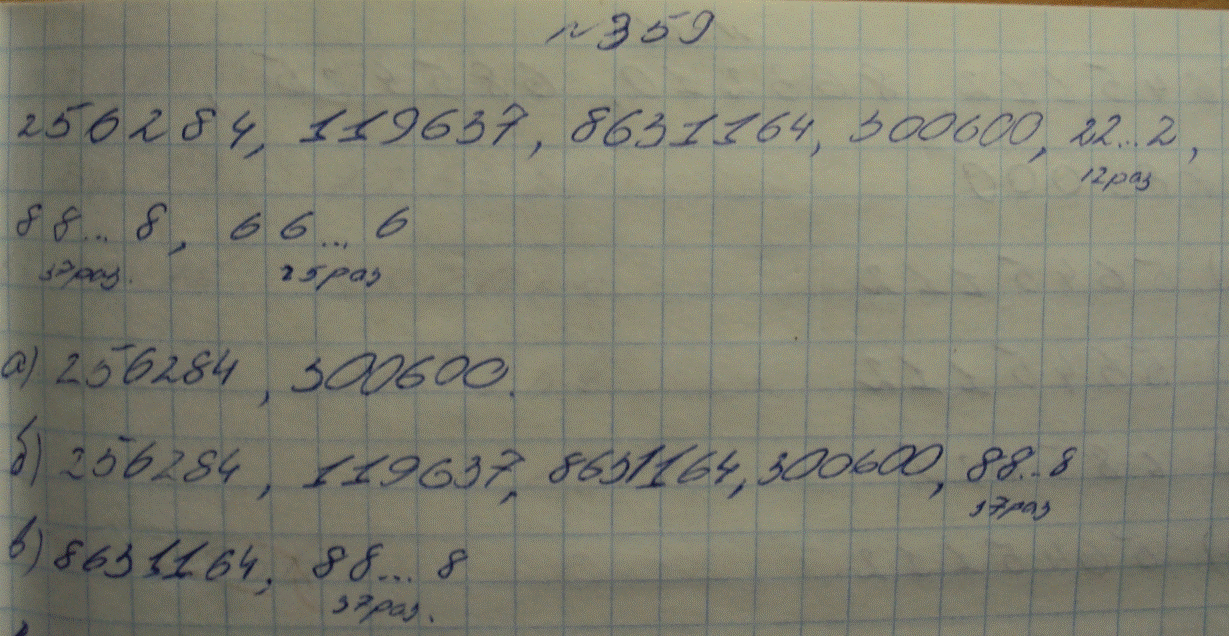 №359
256284, 119637, 8631164, 300600, 22...2,
12раз
88...8, 66...6
37раз. 25раз
а) 256284, 300600.
б) 256284, 119637, 8631164, 300600, 88...8
37раз
в) 8631164, 88...8
37раз.